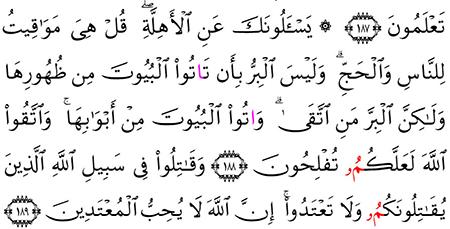 تَعْلَمُونَ ١٨٧ ۞ يَسْـَٔلُونَكَ عَنِ ٱلْأَهِلَّةِۖ قُلْ هِىَ مَوَٰقِيتُ
لِلنَّاسِ وَٱلْحَجِّۗ وَلَيْسَ ٱلْبِرُّ بِأَن تَاتُوا۟ ٱلْبُيُوتَ مِن ظُهُورِهَا
وَلَٰكِنَّ ٱلْبِرَّ مَنِ ٱتَّقَىٰۗ وَاتُوا۟ ٱلْبُيُوتَ مِنْ أَبْوَٰبِهَاۚ وَٱتَّقُوا۟
ٱللَّهَ لَعَلَّكُمُۥ تُفْلِحُونَ ١٨٨ وَقَٰتِلُوا۟ فِى سَبِيلِ ٱللَّهِ ٱلَّذِينَ
يُقَٰتِلُونَكُمُۥ وَلَا تَعْتَدُوٓا۟ۚ إِنَّ ٱللَّهَ لَا يُحِبُّ ٱلْمُعْتَدِينَ ١٨٩